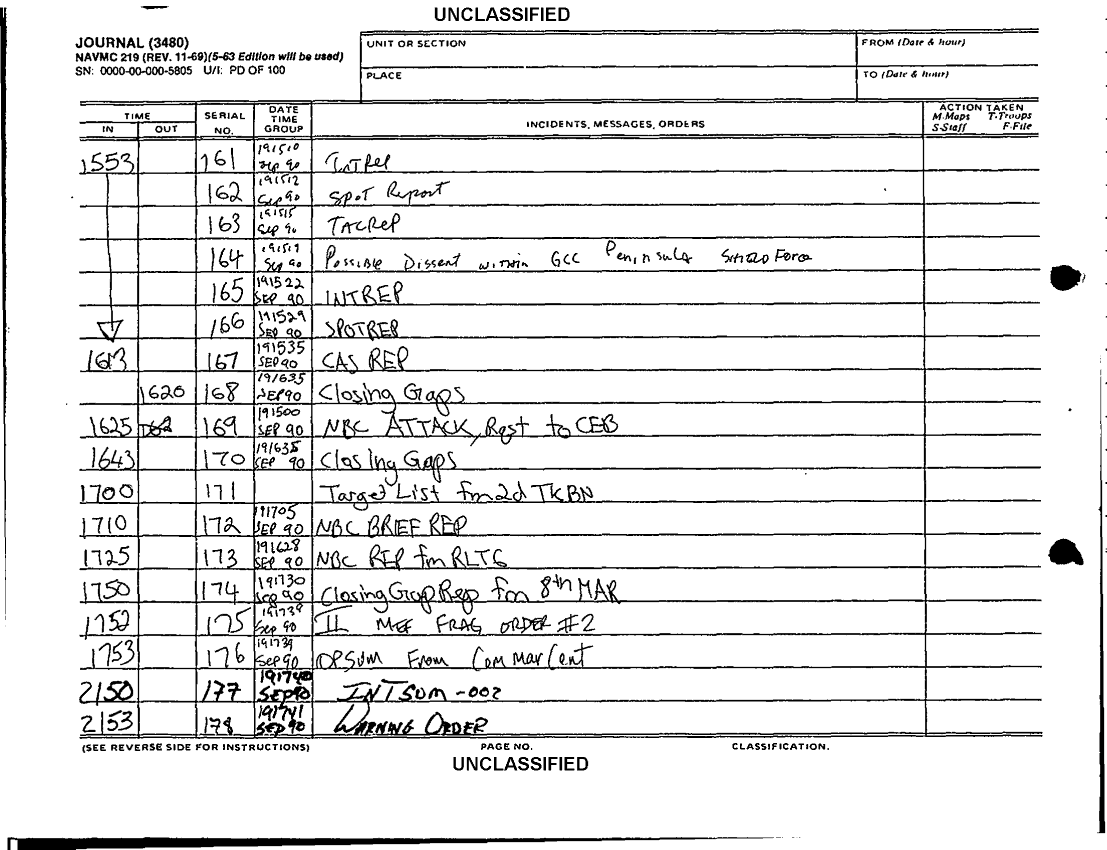 UNCLASSIFIED
JOURNAL (3480)
NAVMC 219 (REV. 11-69)(5-63 Edition will be used)
SN: 0000-00-000-5805 U/I: PD OF 100
UNIT OR SECTION
FROM (Date & hour)
PLACE
TO (Date & hour)
TIME
IN OUT
SERIAL NO.
DATE TIME GROUP
INCIDENTS, MESSAGES, ORDERS
ACTION TAKEN
M-Maps T-Troops
S-Staff F-File
1553 161 191510 Sep 90 INTREP
162 191512 Sep 90 SPOT Report
163 191515 Sep 90 TACREP
164 191519 Sep 90 Possible Dissent within GCC Peninsula Shield Force
165 191522 SEP 90 INTREP
166 191529 SEP 90 SPOTREP
1613 167 191535 SEP 90 CAS REP
1620 168 191635 SEP 90 Closing Gaps
1625 169 191500 SEP 90 NBC ATTACK, Rqst to CEB
1643 170 191635 SEP 90 Closing Gaps
1700 171 Target List fm 2d TKBN
1710 172 191705 SEP 90 NBC BRIEF REP
1725 173 191628 SEP 90 NBC REP fm RLT6
1750 174 191730 Sep 90 Closing Gap Rep fm 8th MAR
1752 175 191739 Sep 90 II MEF FRAG ORDER #2
1753 176 191739 Sep 90 OPSUM From ComMarCent
2150 177 191740 SEP 90 INTSUM-002
2153 178 191741 SEP 90 WARNING ORDER
(SEE REVERSE SIDE FOR INSTRUCTIONS) PAGE NO. CLASSIFICATION.
UNCLASSIFIED